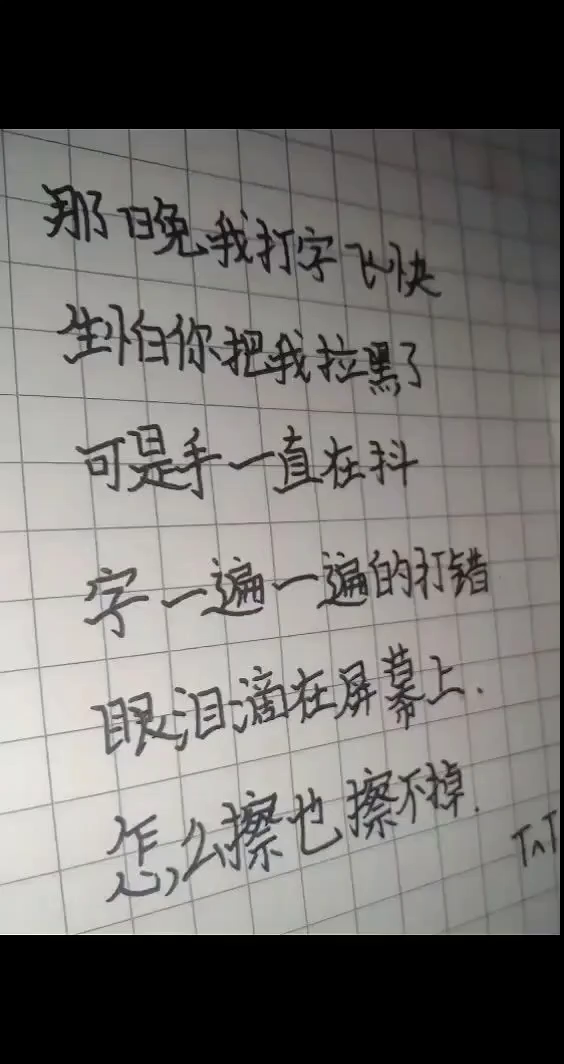 那晚我打字飞快
生怕你把我拉黑了
可是手一直在抖
字一遍一遍的打错
眼泪滴在屏幕上.
怎么擦也擦不掉.
T^T